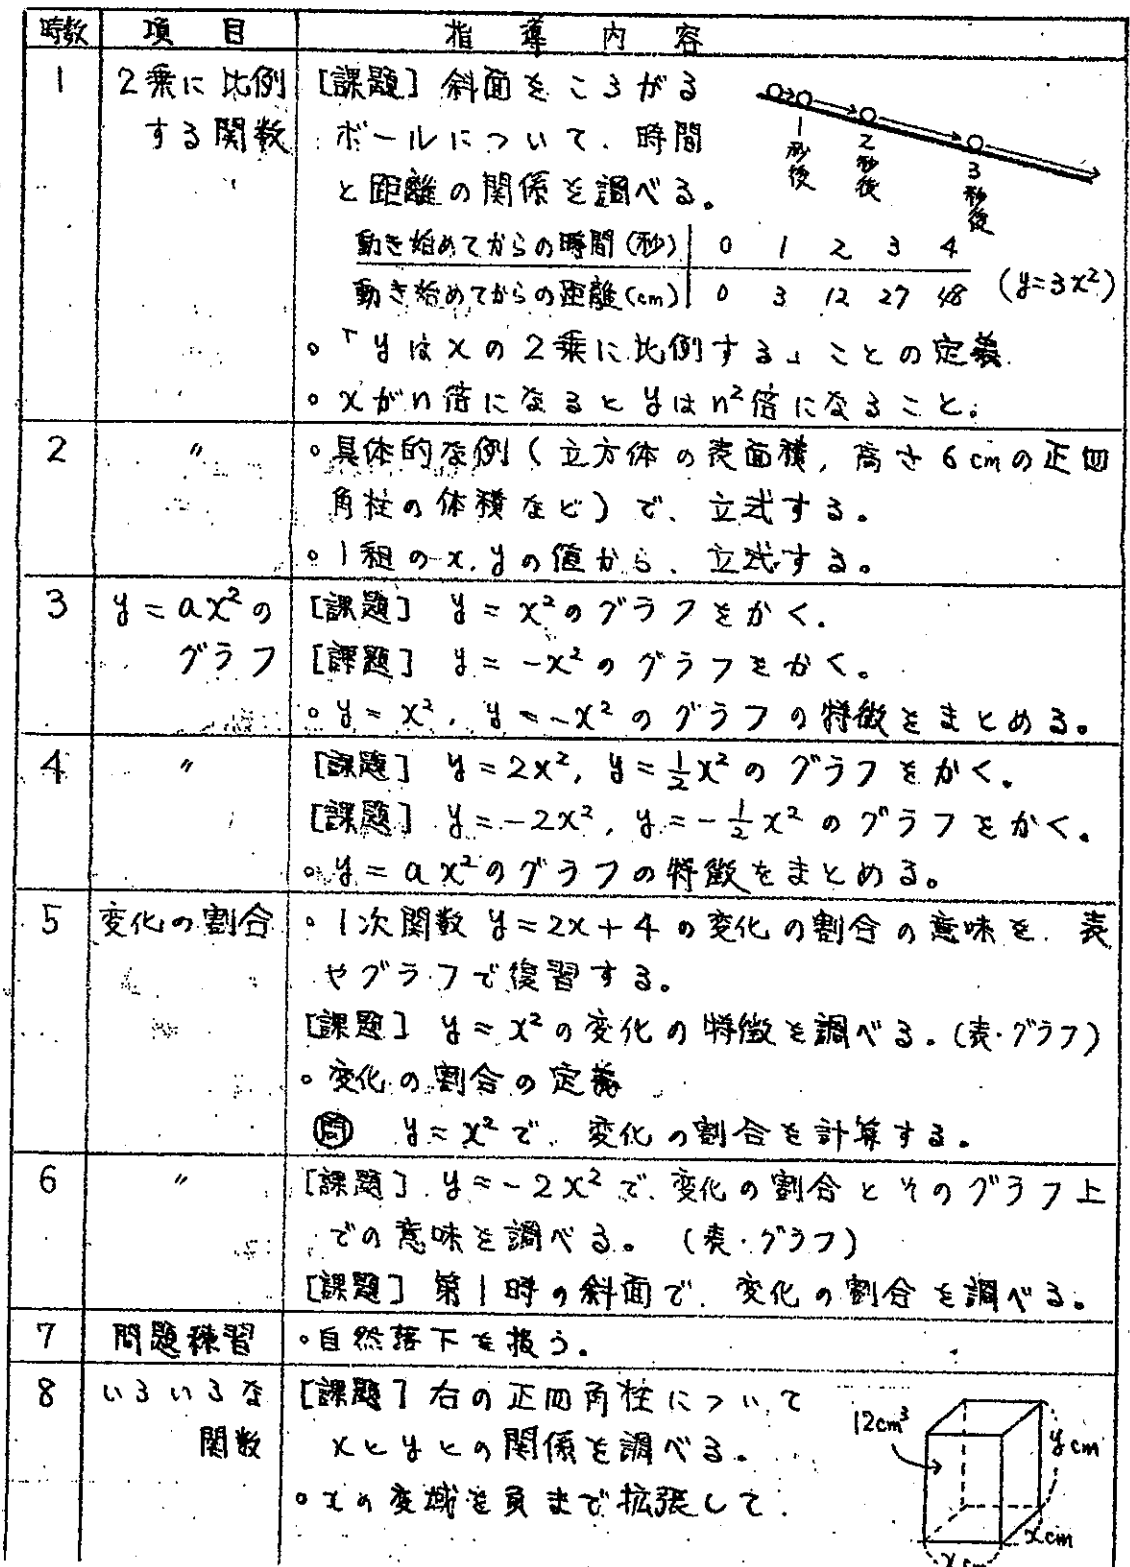 時数 項目 指導内容
1 2乗に比例 [課題] 斜面をころがる
する関数 ボールについて、時間
と距離の関係を調べる。
1秒後 2秒後 3秒後
動き始めてからの時間(秒) 0 1 2 3 4
動き始めてからの距離(cm) 0 3 12 27 48 (y=3x²)
○「yはxの2乗に比例する」ことの定義
○xがn倍になるとyはn²倍になること。
2 〃 ○具体的な例(立方体の表面積, 高さ6cmの正四
角柱の体積など)で、立式する。
○1組のx, yの値から、立式する。
3 y=ax²の [課題] y=x²のグラフをかく.
グラフ [課題] y=-x²のグラフをかく。
○y=x², y=-x²のグラフの特徴をまとめる。
4 〃 [課題] y=2x², y=1/2x²のグラフをかく。
[課題] y=-2x², y=-1/2x²のグラフをかく。
○y=ax²のグラフの特徴をまとめる。
5 変化の割合 ○1次関数y=2x+4の変化の割合の意味を、表
やグラフで復習する。
[課題] y=x²の変化の特徴を調べる.(表・グラフ)
○変化の割合の定義
問 y=x²で、変化の割合を計算する。
6 〃 [課題] y=-2x²で、変化の割合とそのグラフ上
での意味を調べる。(表・グラフ)
[課題] 第1時の斜面で、変化の割合を調べる。
7 問題練習 ○自然落下を扱う.
8 いろいろな [課題] 右の正四角柱について
関数 xとyとの関係を調べる.
○xの変域を負まで拡張して
12cm³
y cm
x cm
x cm